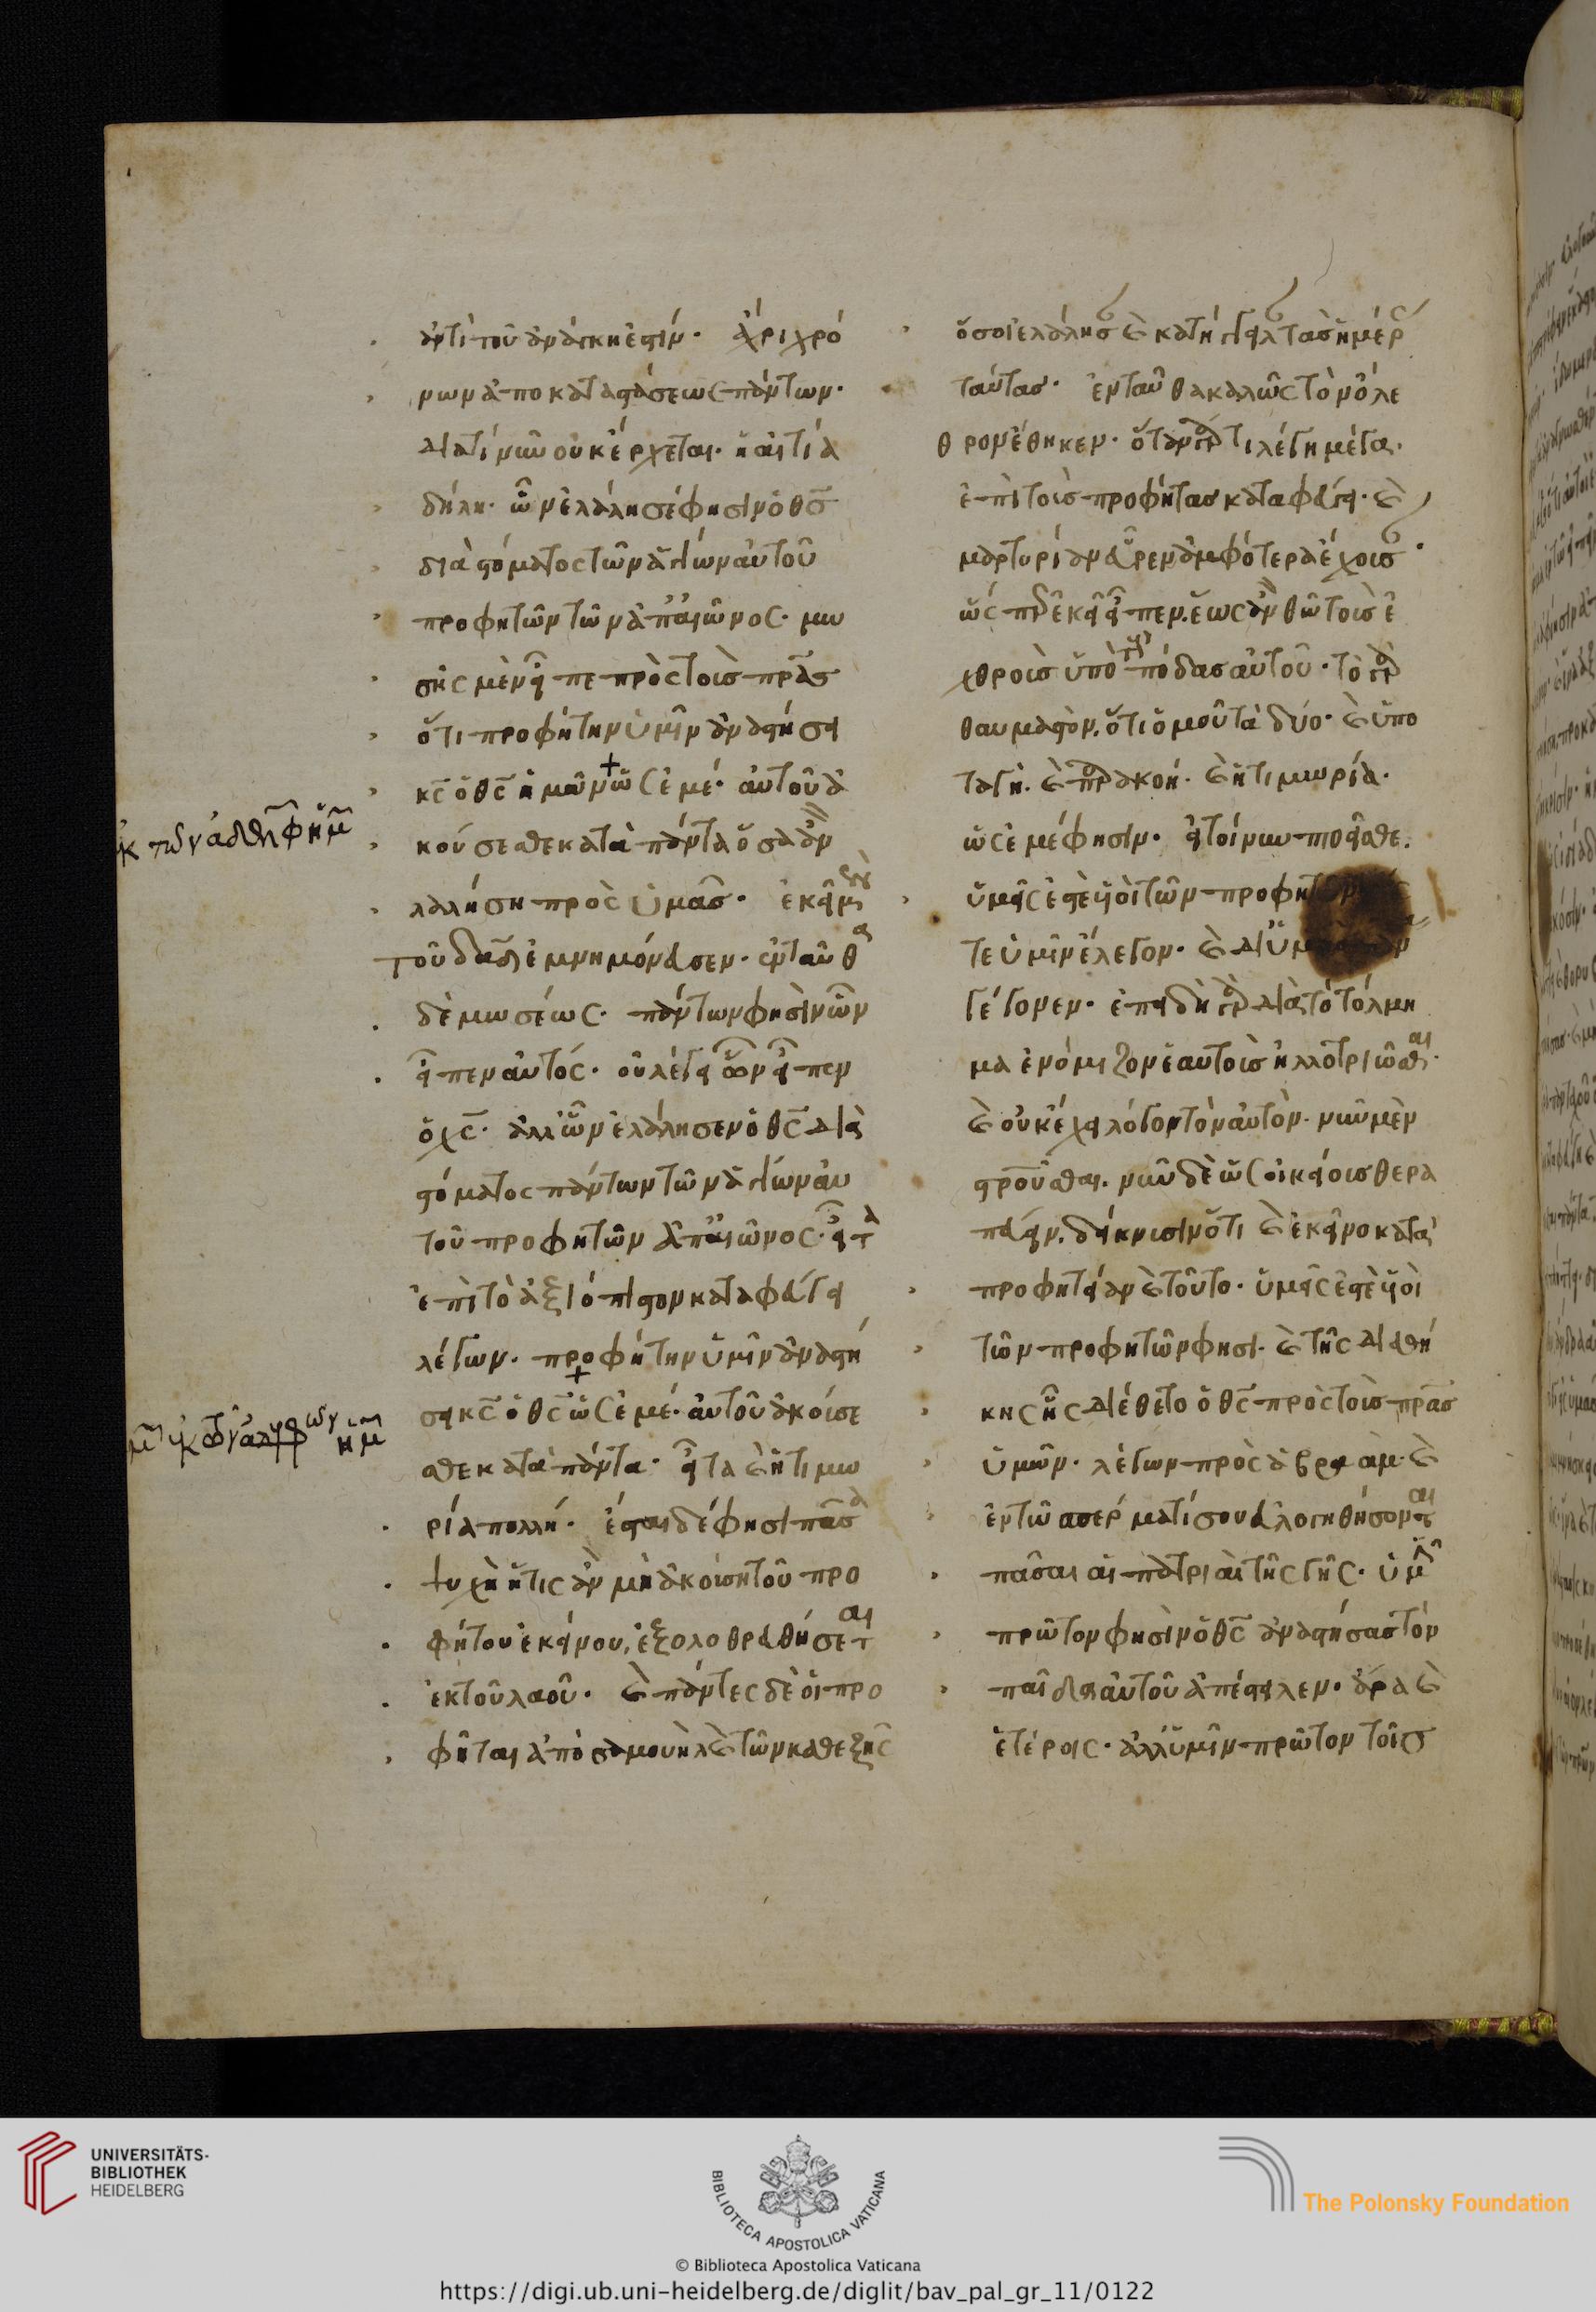 ἀντὶ τοῦ ἀνάγκη ἐστίν. ἄχρι χρό
νων ἀποκαταστάσεως πάντων.
διατί νῦν οὐκ ἔρχεται. ἡ αἰτία
δήλη. ὧν ἐλάλησέ φησιν ὁ θσ
διὰ στόματος τῶν ἁγίων αὐτοῦ
προφητῶν τῶν ἀπ' αἰῶνος. μω
σῆς μὲν εἶπε πρὸς τοὺς πρασ
ὅτι προφήτην ὑμῖν ἀναστήσει
κς ὁ θς ἡμῶν ὡς ἐμέ. αὐτοῦ ἀ
κούσεσθε κατὰ πάντα ὅσα ἂν
λαλήση πρὸς ὑμᾶς. ἐκεῖ μὲν
τοῦ δαδ ἐμνημόνευσεν. ἐνταῦθα
δὲ μωσέως. πάντων φησὶν ὧν
εἶπεν αὐτός. οὐ λέγει ὧν εἶπεν
ὁ χς. ἀλλ' ὧν ἐλάλησεν ὁ θς διὰ
στόματος πάντων τῶν ἁγίων αὐ
τοῦ προφητῶν ἀπ' αἰῶνος. εἶτα
ἐπὶ τὸ ἀξιόπιστον καταφεύγει
λέγων. προφήτην ὑμῖν ἀναστή
σει κς ὁ θς ὡς ἐμέ. αὐτοῦ ἀκούσε
σθε κατὰ πάντα. εἶτα καὶ ἡ τιμω
ρία πολλή. ἔσται δέ φησι πᾶσα
ψυχὴ ἥτις ἂν μὴ ἀκούση τοῦ προ
φήτου ἐκείνου, ἐξολοθρευθήσεται
ἐκ τοῦ λαοῦ. καὶ πάντες δὲ οἱ προ
φῆται ἀπὸ σαμουὴλ καὶ τῶν καθεξῆς
ὅσοι ἐλάλησαν καὶ κατήγγειλαν τὰς ἡμέρας
ταύτας. ἐνταῦθα καλῶς τὸν ὄλε
θρον ἔθηκεν. ὅταν γάρ τι λέγη μέγα.
ἐπὶ τοὺς προφήτας καταφεύγει. καὶ
μαρτυρίαν εὗρεν ἀμφότερα ἔχουσαν.
ὥσπερ ἐκεῖ εἶπεν. ἕως ἂν θῶ τοὺς ἐ
χθροὺς ὑπὸ τοὺς πόδας αὐτοῦ. τὸ γὰρ
θαυμαστὸν, ὅτι ὁμοῦ τὰ δύο. καὶ ὑπο
ταγὴ. καὶ παρακοή. καὶ ἡ τιμωρία.
ὡς ἐμέ φησιν. τί τοίνυν πτοεῖσθε.
ὑμεῖς ἐστὲ υἱοὶ τῶν
τε ὑμῖν ἔλεγον. καὶ
γέγονεν. ἐπειδὴ γὰρ διὰ τὸ τόλμη
μα ἐνόμιζον ἑαυτοὺς ἠλλοτριῶσθαι.
καὶ οὐκ εἶχε λόγον τὸν αὐτὸν. νῦν μὲν
σταυροῦσθαι. νῦν δὲ ὡς οἰκείους θερα
πεύειν. δείκνυσιν ὅτι καὶ ἐκεῖνο κατὰ
προφητείαν καὶ τοῦτο. ὑμεῖς ἐστὲ υἱοὶ
τῶν προφητῶν φησι. καὶ τῆς διαθή
κης ἧς διέθετο ὁ θς πρὸς τοὺς πρασ
ὑμῶν. λέγων πρὸς ἀβραάμ. καὶ
ἐν τῶ σπέρματί σου εὐλογηθήσονται
πᾶσαι αἱ πατριαὶ τῆς γῆς. ὑμῖν
πρῶτον φησὶν ὁ θς ἀναστήσας τὸν
παῖδα αὐτοῦ ἀπέστειλεν. ἄρα καὶ
ἑτέροις. ἀλλ' ὑμῖν πρῶτον τοῖς
UNIVERSITÄTS-
BIBLIOTHEK
HEIDELBERG
BIBLIOTECA APOSTOLICA VATICANA
The Polonsky Foundation
© Biblioteca Apostolica Vaticana
https://digi.ub.uni-heidelberg.de/diglit/bav_pal_gr_11/0122